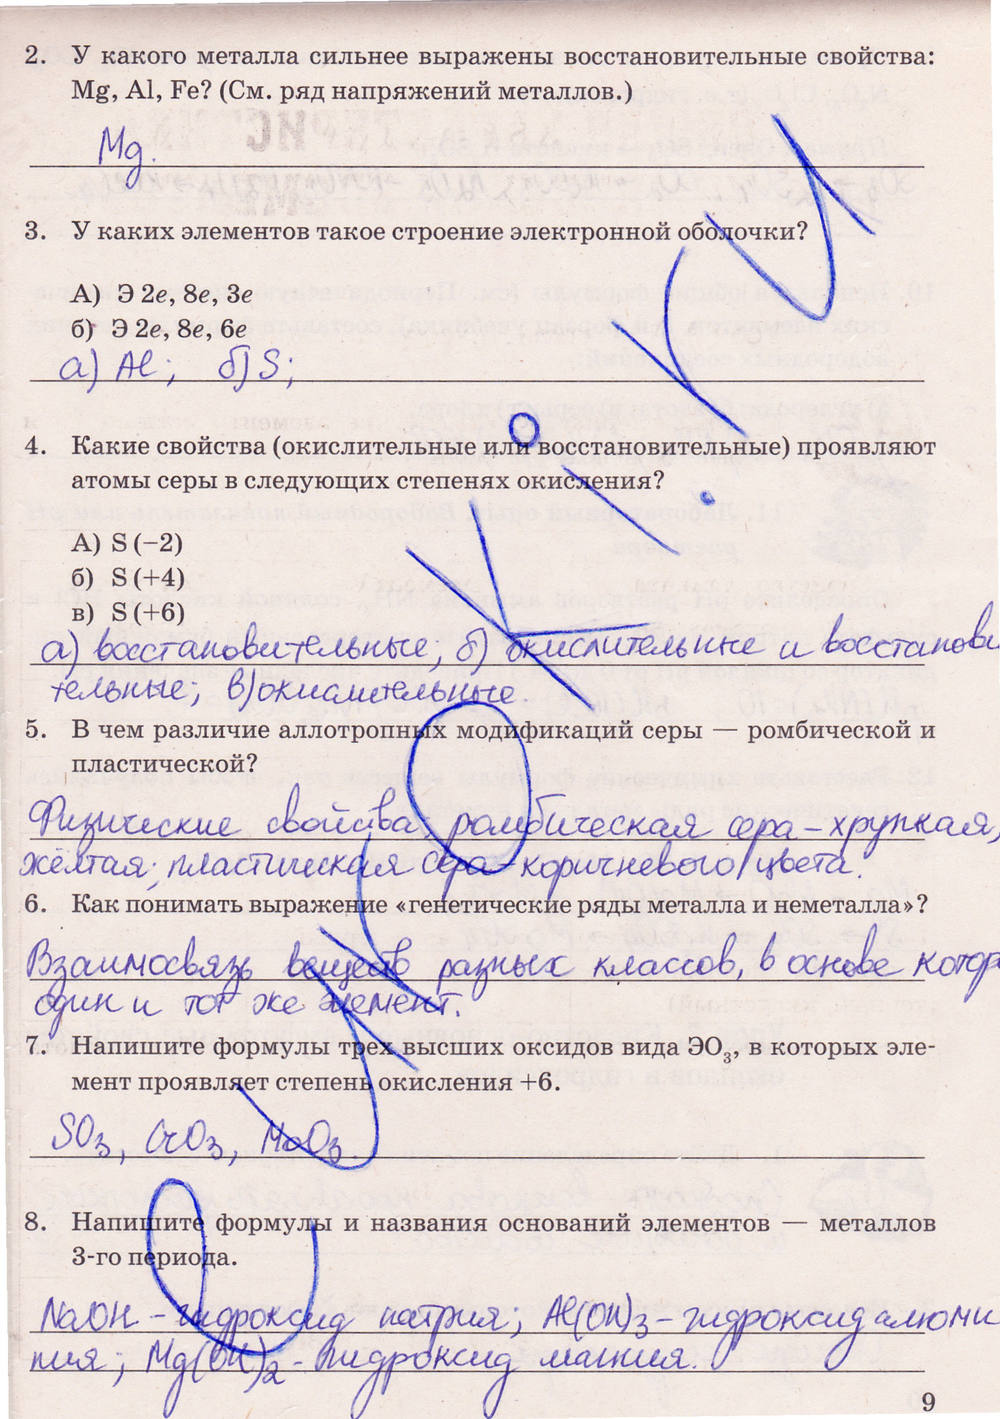 2. У какого металла сильнее выражены восстановительные свойства:
Mg, Al, Fe? (См. ряд напряжений металлов.)
Mg.
3. У каких элементов такое строение электронной оболочки?
А) Э 2e, 8e, 3e
б) Э 2e, 8e, 6e
а) Al; б) S;
4. Какие свойства (окислительные или восстановительные) проявляют
атомы серы в следующих степенях окисления?
А) S (−2)
б) S (+4)
в) S (+6)
а) восстановительные; б) окислительные и восстанови
тельные; в) окислительные.
5. В чем различие аллотропных модификаций серы — ромбической и
пластической?
Физические свойства, ромбическая сера - хрупкая,
жёлтая; пластическая сера - коричневого цвета.
6. Как понимать выражение «генетические ряды металла и неметалла»?
Взаимосвязь веществ разных классов, в основе котор
один и тот же элемент.
7. Напишите формулы трех высших оксидов вида ЭО₃, в которых эле-
мент проявляет степень окисления +6.
SO₃, CrO₃, MoO₃
8. Напишите формулы и названия оснований элементов — металлов
3-го периода.
NaOH - гидроксид натрия; Al(OH)₃ - гидроксид алюми
ния; Mg(OH)₂ - гидроксид магния.
9